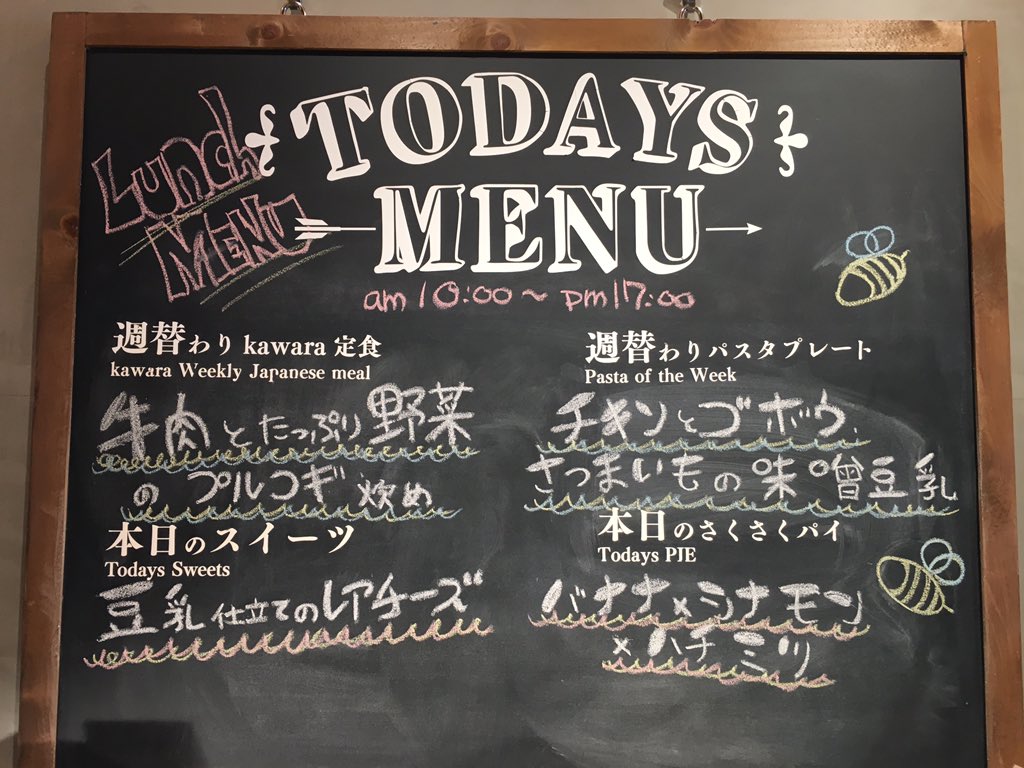 Lunch
MENU
TODAYS
MENU
am 10:00～pm17:00
週替わり kawara 定食
kawara Weekly Japanese meal
牛肉とたっぷり野菜
のプルコギ炒め
本日のスイーツ
Todays Sweets
豆乳仕立てのレアチーズ
週替わりパスタプレート
Pasta of the Week
チキンとゴボウ、
さつまいもの味噌豆乳
本日のさくさくパイ
Todays PIE
バナナ×シナモン
×ハチミツ